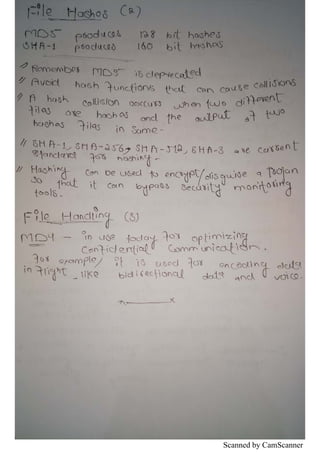 File Hashes (2)
MD5 produces 128 bit hashes
SHA-1 produces 160 bit hashes
// Remember MD5 is deprecated
// Avoid hash functions that can cause collisions
// A hash collision occurs when two different
files are hashes and the output of two
hashes files in same.
// SHA-1, SHA-256, SHA-512, SHA-3 are current
standard for hashing.
// Hashing can be used to encrypt/disguise a Trojan
so that it can bypass security monitoring
tools.
File Handling (3)
MD4 - in use today for optimizing
confidential communication.
for example/ it is used for encoding data
in flight, like bidirectional data and voice.
Scanned by CamScanner